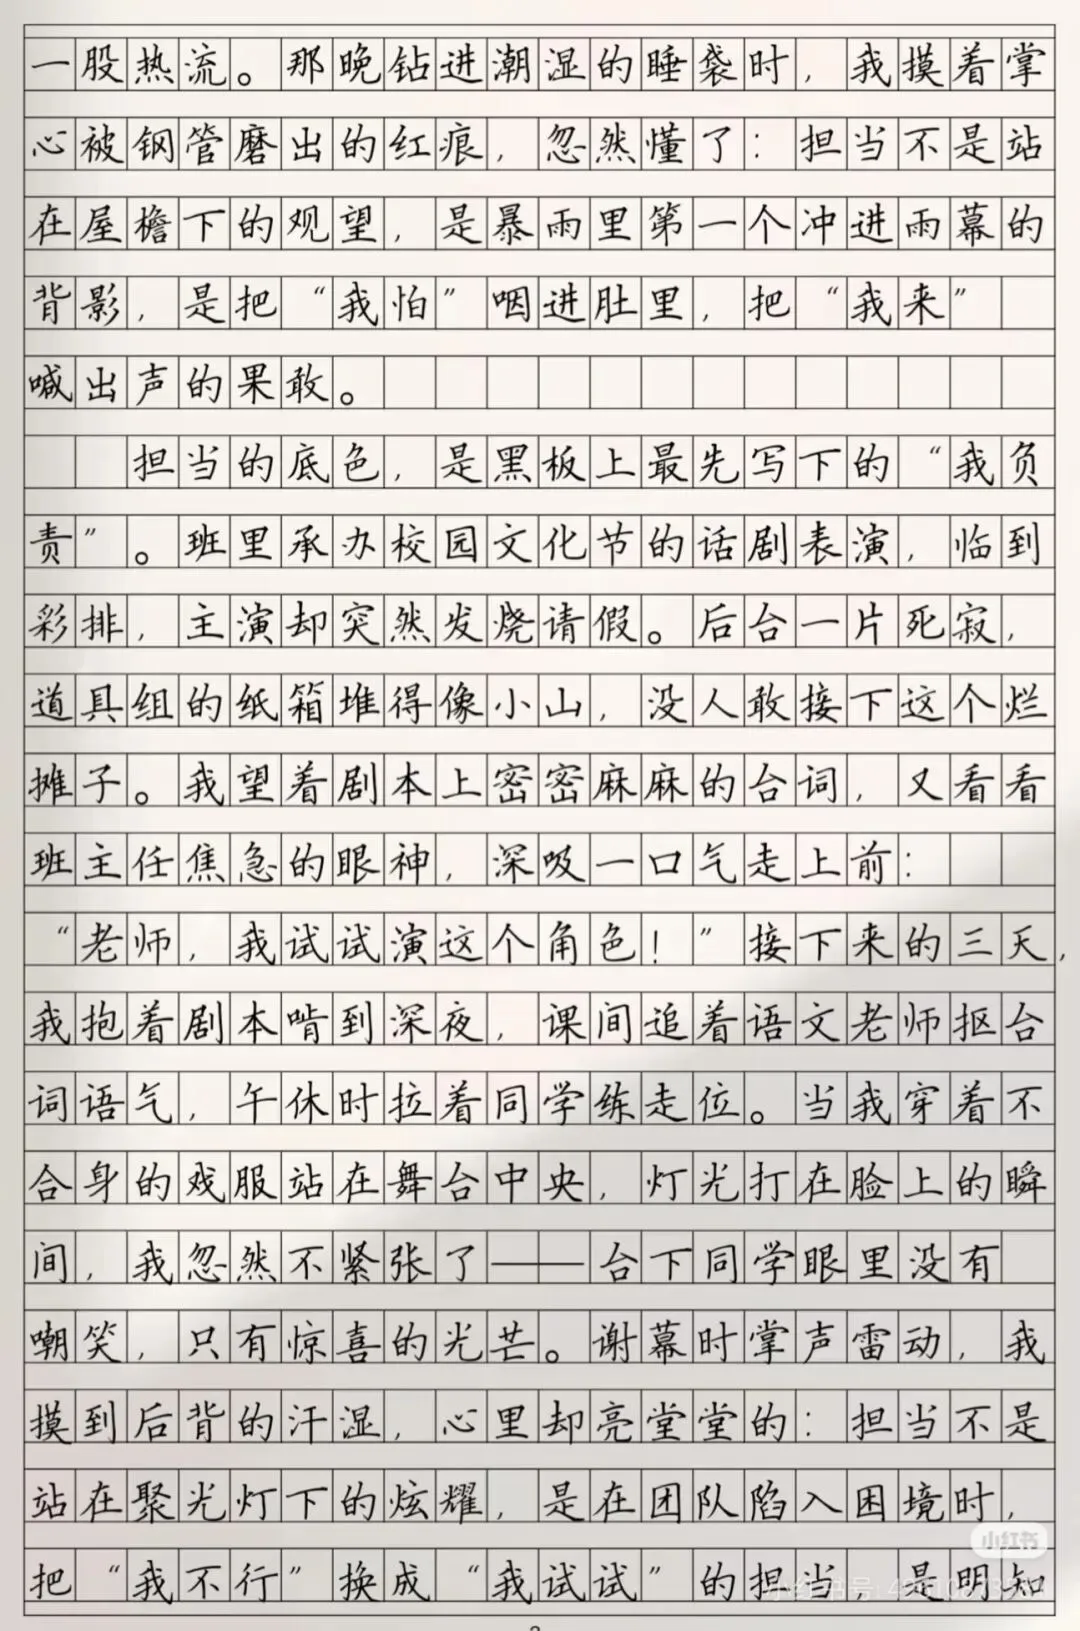 一股热流。那晚钻进潮湿的睡袋时，我摸着掌
心被钢管磨出的红痕，忽然懂了：担当不是站
在屋檐下的观望，是暴雨里第一个冲进雨幕的
背影，是把“我怕”咽进肚里，把“我来”
喊出声的果敢。
担当的底色，是黑板上最先写下的“我负
责”。班里承办校园文化节的话剧表演，临到
彩排，主演却突然发烧请假。后台一片死寂，
道具组的纸箱堆得像小山，没人敢接下这个烂
摊子。我望着剧本上密密麻麻的台词，又看看
班主任焦急的眼神，深吸一口气走上前：
“老师，我试试演这个角色！”接下来的三天，
我抱着剧本啃到深夜，课间追着语文老师抠台
词语气，午休时拉着同学练走位。当我穿着不
合身的戏服站在舞台中央，灯光打在脸上的瞬
间，我忽然不紧张了——台下同学眼里没有
嘲笑，只有惊喜的光芒。谢幕时掌声雷动，我
摸到后背的汗湿，心里却亮堂堂的：担当不是
站在聚光灯下的炫耀，是在团队陷入困境时，
把“我不行”换成“我试试”的担当，是明知
小红书